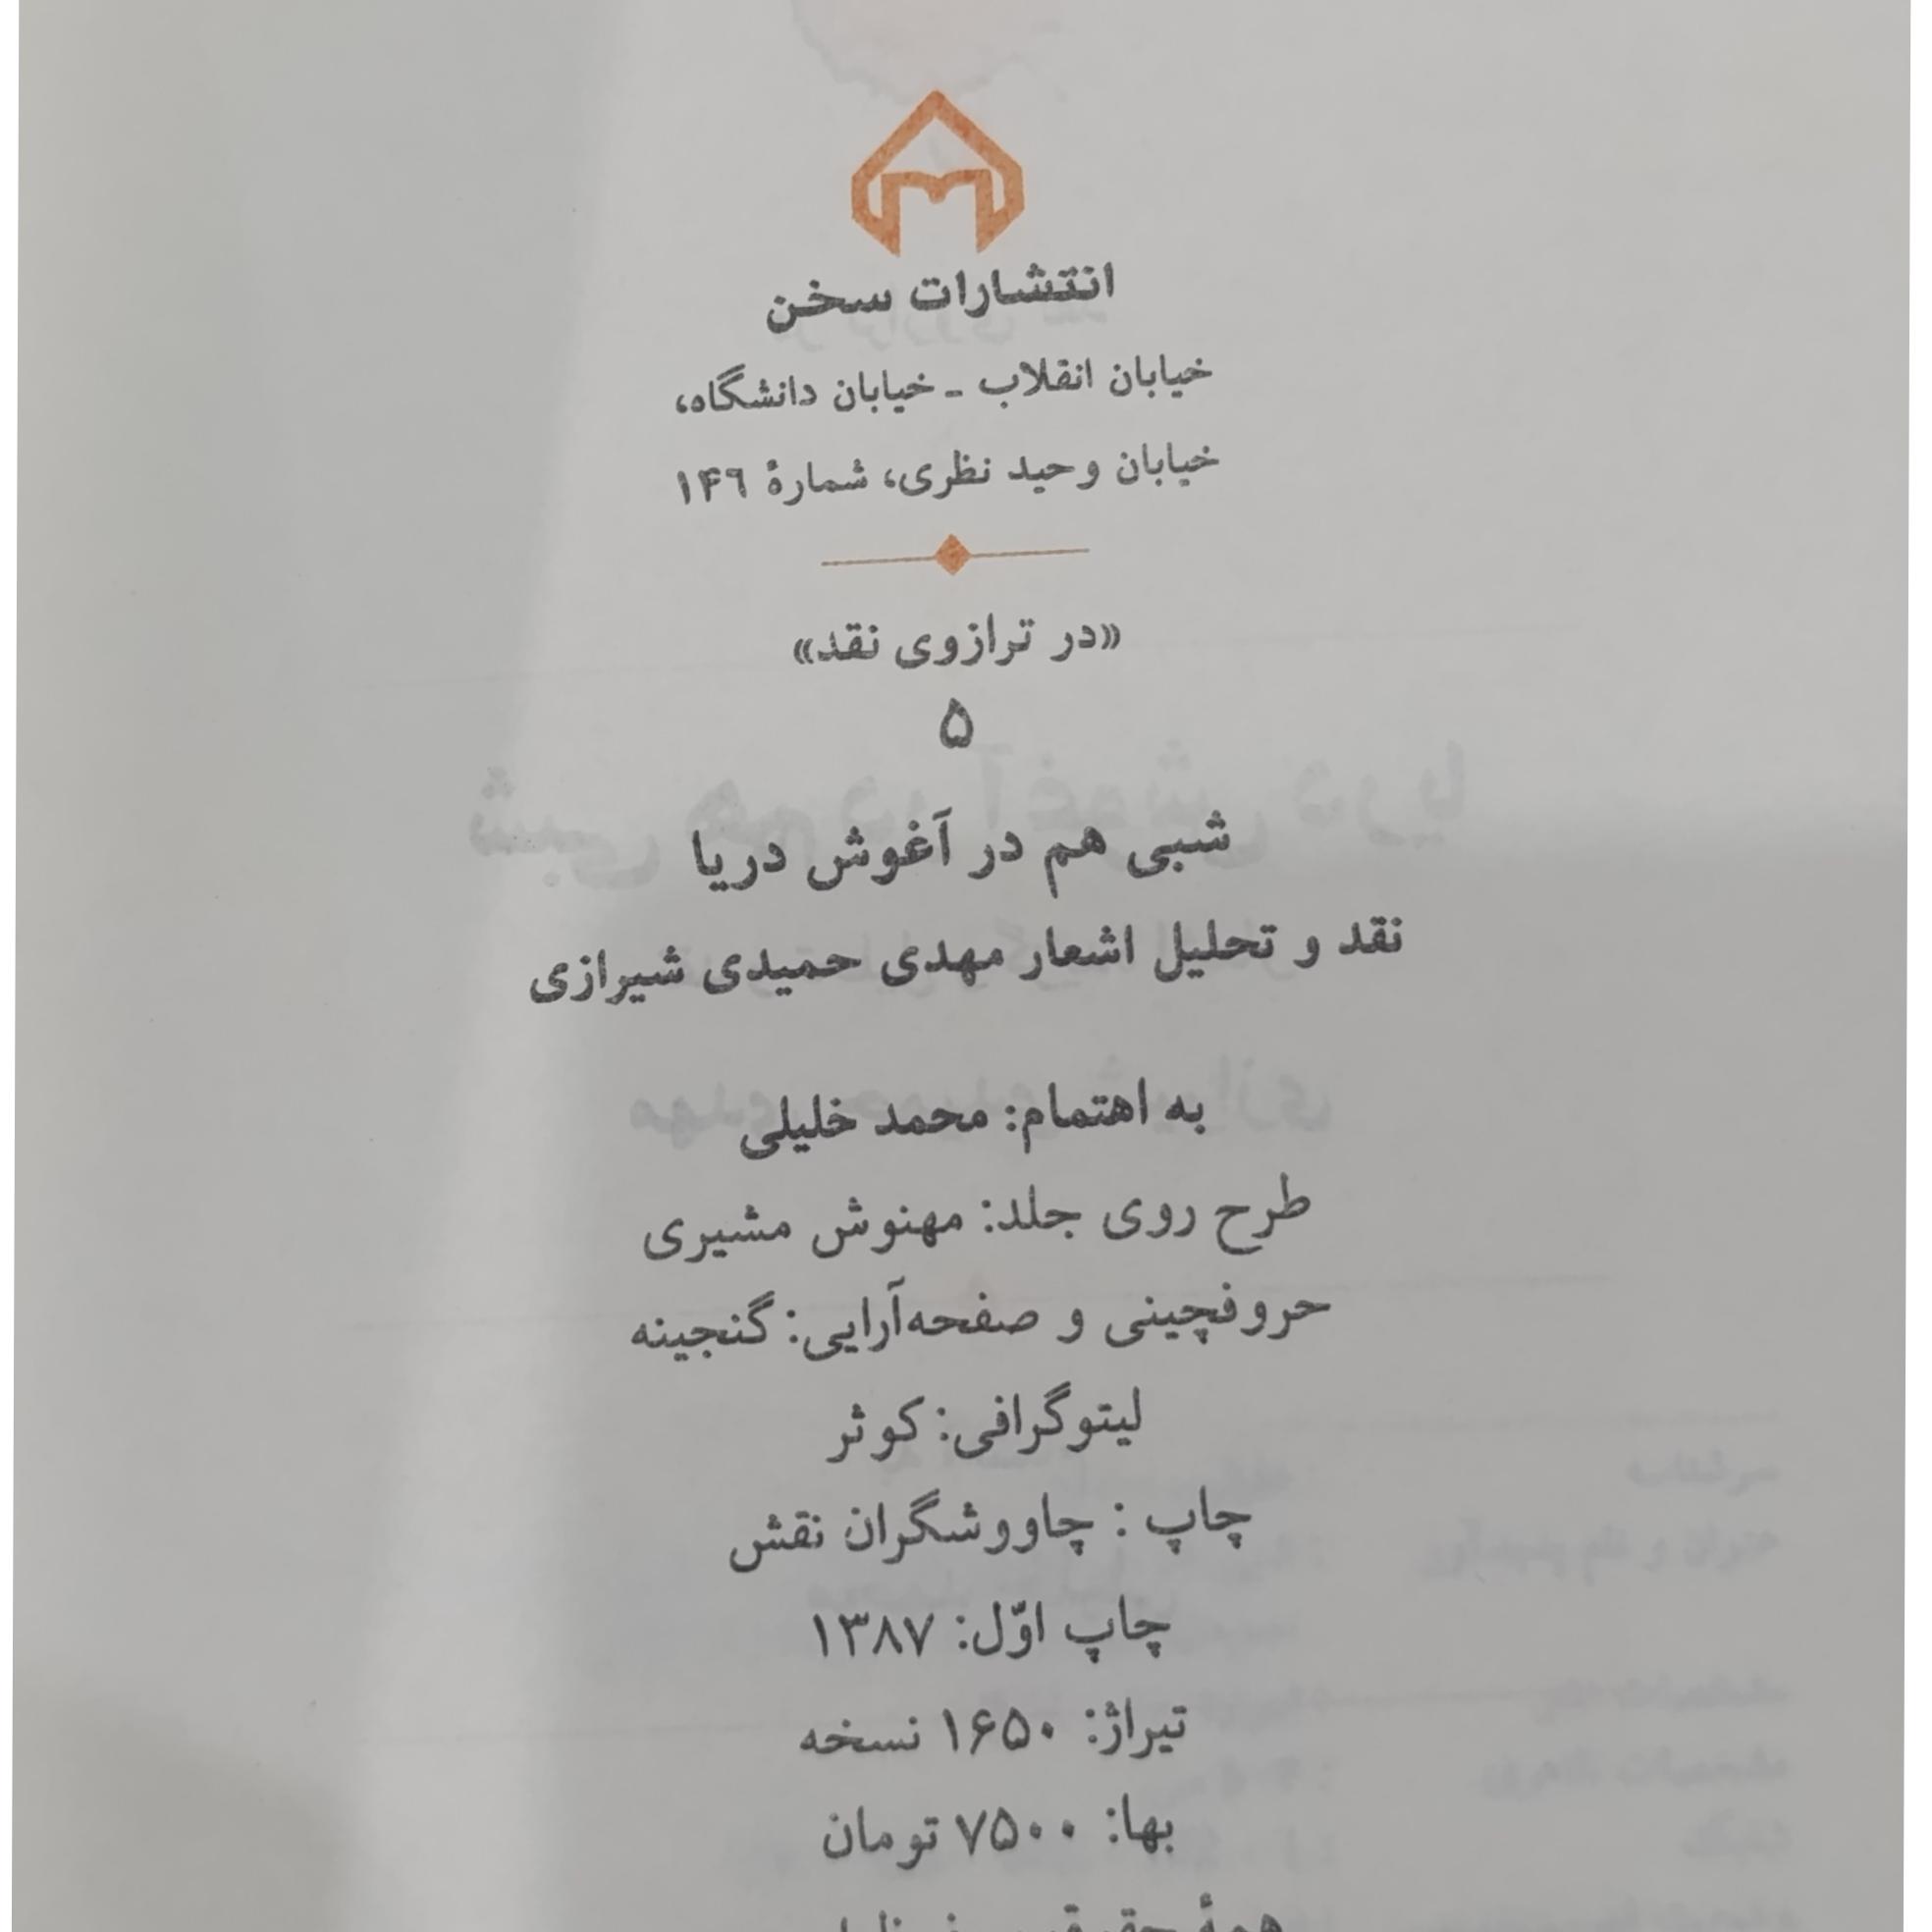 انتشارات سخن
خیابان انقلاب ـ خیابان دانشگاه،
خیابان وحید نظری، شمارهٔ ۱۴۶
«در ترازوی نقد»
۵
شبی هم در آغوش دریا
نقد و تحلیل اشعار مهدی حمیدی شیرازی
به اهتمام: محمد خلیلی
طرح روی جلد: مهنوش مشیری
حروفچینی و صفحه‌آرایی: گنجینه
لیتوگرافی: کوثر
چاپ : چاووشگران نقش
چاپ اوّل: ۱۳۸۷
تیراژ: ۱۶۵۰ نسخه
بها: ۷۵۰۰ تومان
همهٔ حقوق